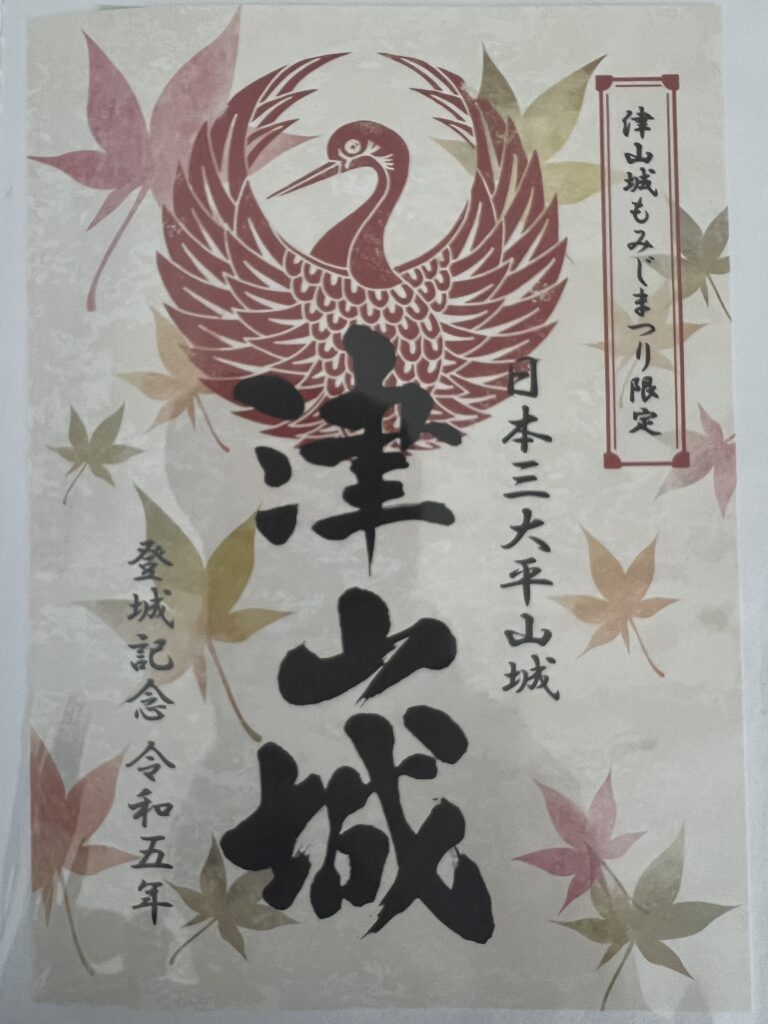 津山城もみじまつり限定
日本三大平山城
津山城
登城記念 令和五年